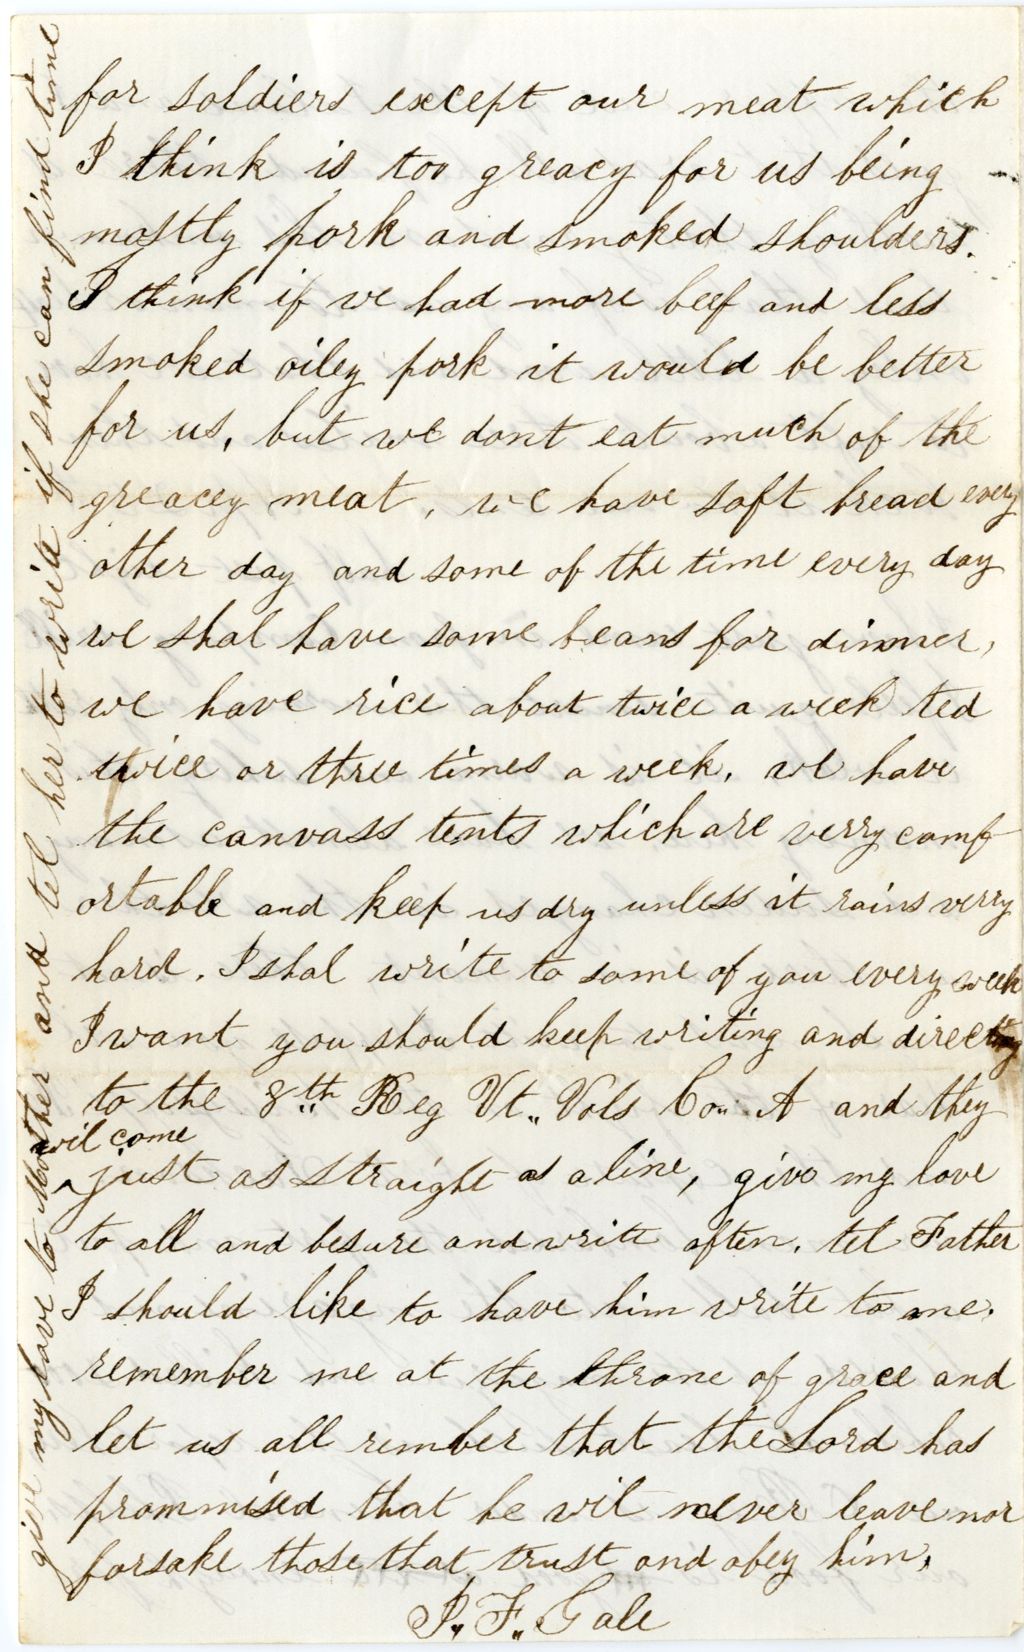 for soldiers except our meat which
I think is too greacy for us being
mostly pork and smoked shoulders.
I think if we had more beef and less
smoked oiley pork it would be better
for us, but we dont eat much of the
greacey meat, we have soft bread every
other day and some of the time every day
we shal have some beans for dinner,
we have rice about twice a week ted
twice or three times a week. we have
the canvass tents which are verry comf
ortable and keep us dry unless it rains verry
hard. I shal write to some of you every week
I want you should keep writing and directing
to the 8th Reg Vt. Vols Co. A and they
wil come
^ just as straight as a line, give my love
to all and besure and write often. tel Father
I should like to have him write to me.
remember me at the throne of grace and
let us all rimber that the Lord has
prommised that he wil never leave nor
forsake those that trust and obey him.
P. F. Gale
give my love to Mother and tel her to write if she can find time